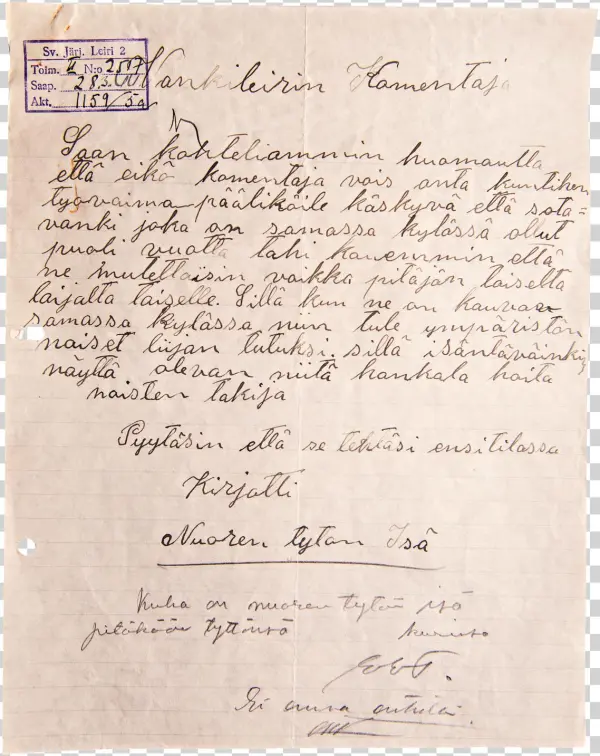 Sv. Järj. Leiri 2
Toim. II N:o 2517
Saap. 28.3.
Akt. 1159/5a
Vankileirin Komentaja
Saan kohteliammin huomautta
että eikö komentaja vois anta kuntihen
työvaima päälikõile käskyvä että sota=
vanki joka on samassa kylässä ollut
puoli vuotta tahi kauvemmin että
ne mutettaisin vaikka pitäjän toiselta
laijalta toiselle. Sillä kun ne on kauvan
samassa kylässä niin tule ympäristön
naiset liijan tutuksi. sillä isäntäväinkin
näyttä olevan niitä hankala hoita
naisten takija
Pyytäsin että se tehtäsi ensitilassa
Kirjotti
Nuoren tytön Isä
Kuka on nuoren tytön isä
pitäköön tyttönsä kurissa
Ei anna aihetta.